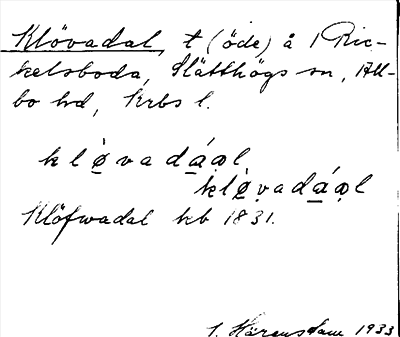 Klövadal, t (öde) å 1 Ric-
kelsboda, Slätthögs sn, All-
bo hd, Krbs l.
klø̀vadá̱ǫl
klø̀vadá̱ǫl
Klöfwadal kb 1831.
1933